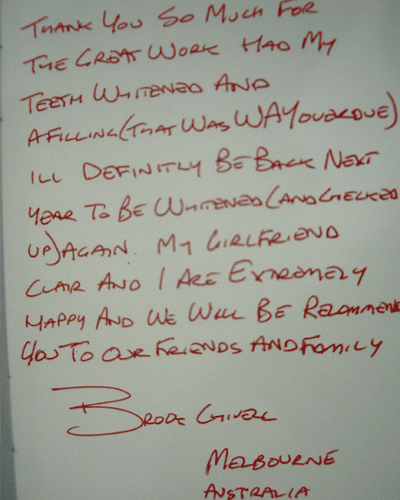 THANK YOU SO MUCH FOR
THE GREAT WORK HAD MY
TEETH WHITENED AND
A FILLING (THAT WAS WAY OVERDUE)
ILL DEFINITLY BE BACK NEXT
YEAR TO BE WHITENED (AND CHECKED
UP) AGAIN. MY GIRLFRIEND
CLAIR AND I ARE EXTREMELY
HAPPY AND WE WILL BE RECOMMEN
YOU TO OUR FRIENDS AND FAMILY
MELBOURNE
AUSTRALIA